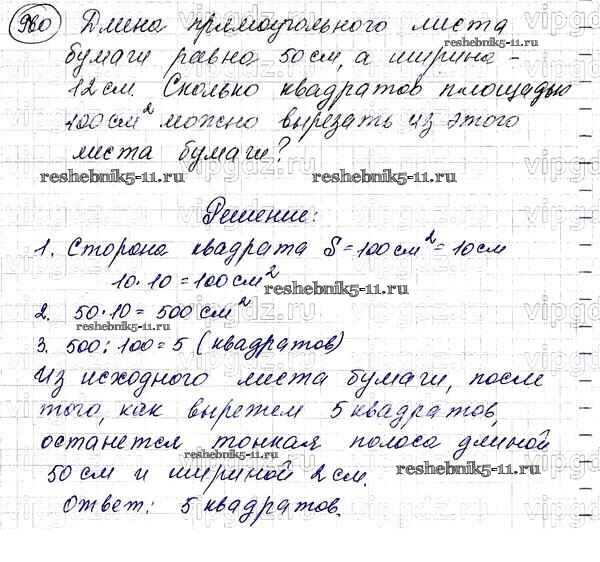 980 Длина прямоугольного листа
бумаги равна 50 см, а ширина -
12 см. Сколько квадратов площадью
100 см² можно вырезать из этого
листа бумаги?
Решение:
1. Сторона квадрата S = 100 см² = 10 см
10 · 10 = 100 см²
2. 50 · 10 = 500 см²
3. 500 : 100 = 5 (квадратов)
Из исходного листа бумаги, после
того, как вырежем 5 квадратов,
останется тонкая полоса длиной
50 см и шириной 2 см.
Ответ: 5 квадратов.
reshebnik5-11.ru
reshebnik5-11.ru
reshebnik5-11.ru
reshebnik5-11.ru
reshebnik5-11.ru
reshebnik5-11.ru